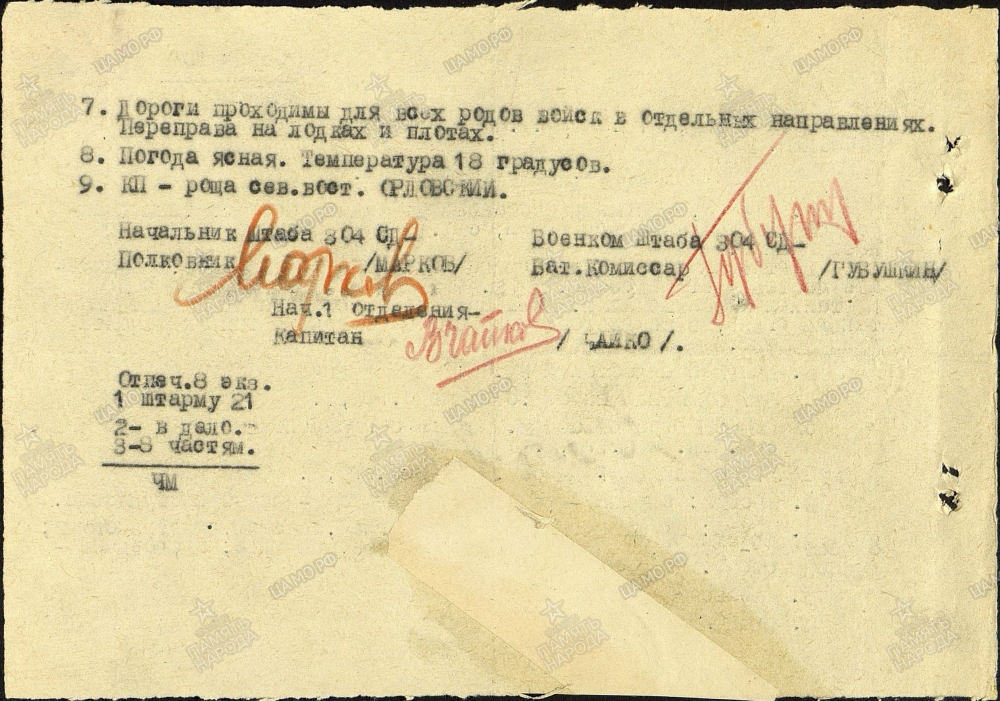 7. Дороги проходимы для всех родов войск в отдельных направлениях.
Переправа на лодках и плотах.
8. Погода ясная. Температура 18 градусов.
9. КП - роща сев.вост. ОРЛОВСКИЙ.
Начальник штаба 304 СД-
Полковник /МАРКОВ/
Марков
Военком штаба 304 СД-
Бат.Комиссар /ГУБУШКИН/
Нач.1 Отделения-
Капитан /ЧАЙКО/.
Отпеч.8 экз.
1 штарму 21
2- в дело.
3-8 частям.
ЧМ
ПАМЯТЬ НАРОДА
ЦАМО РФ